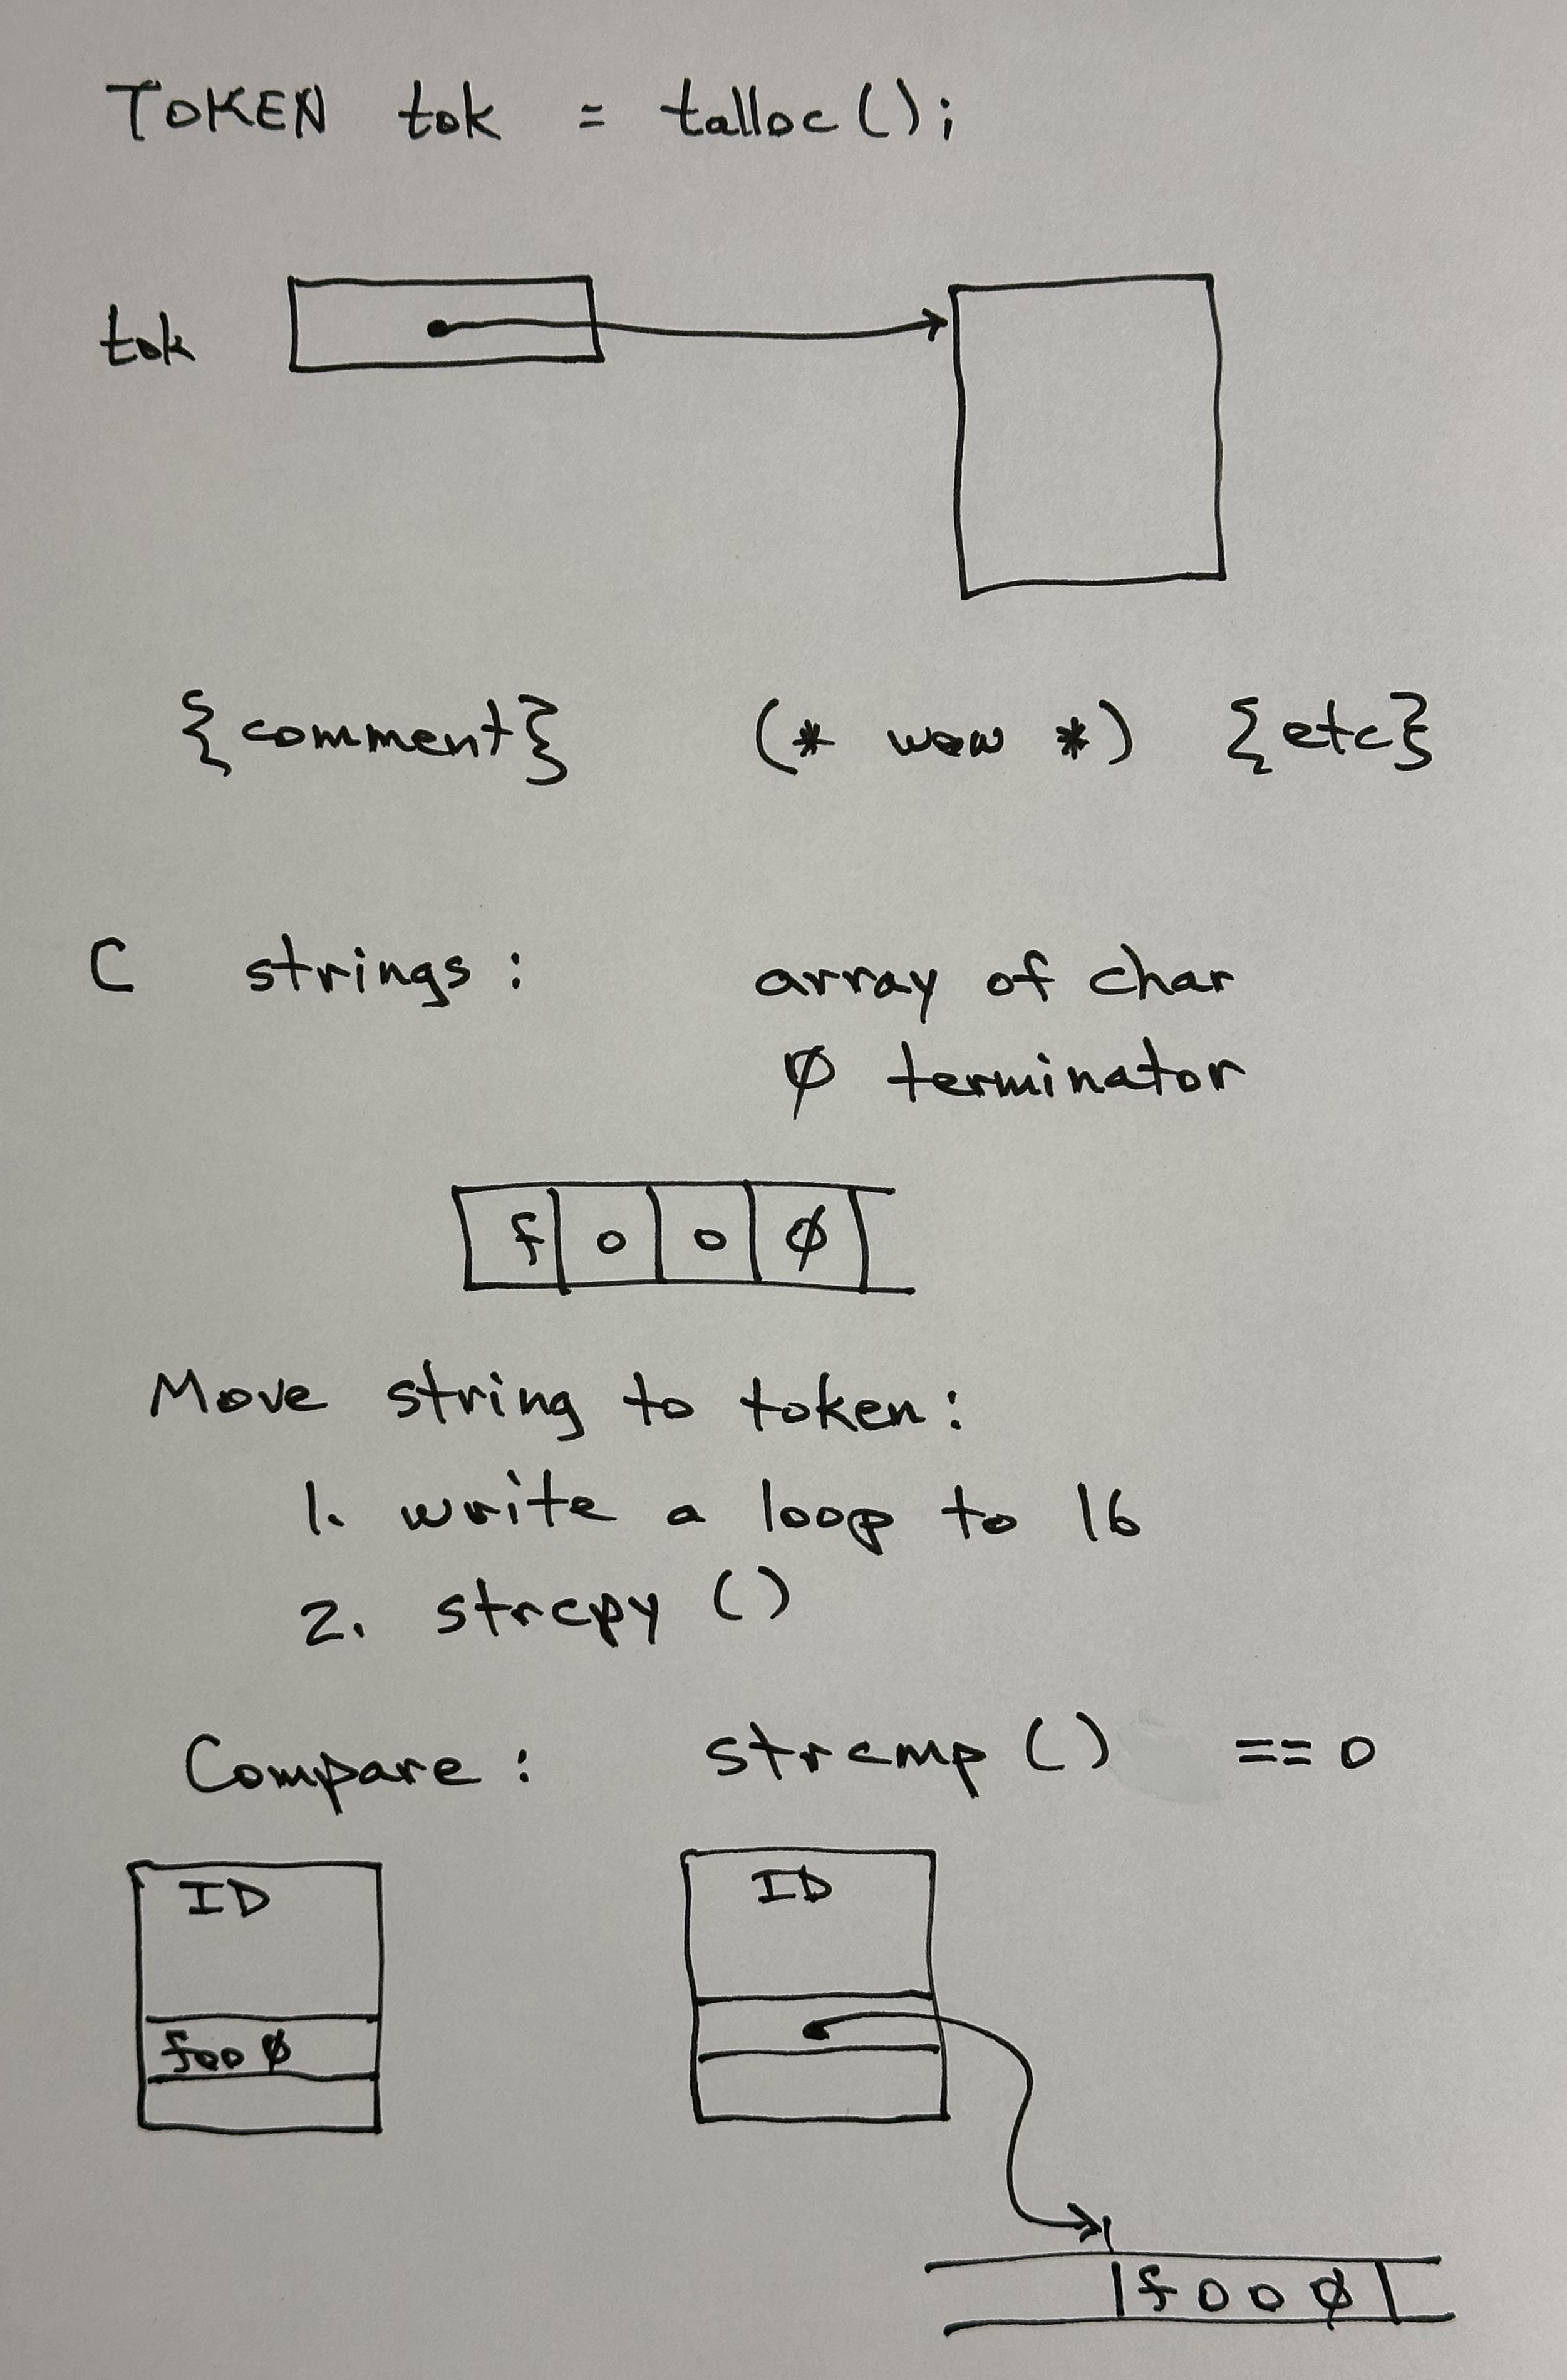 TOKEN tok = talloc();
tok
{comment} (* wow *) {etc}
C strings: array of char
∅ terminator
f o o ∅
Move string to token:
1. write a loop to 16
2. strcpy ()
Compare: strcmp () == 0
ID ID
foo ∅
f o o ∅